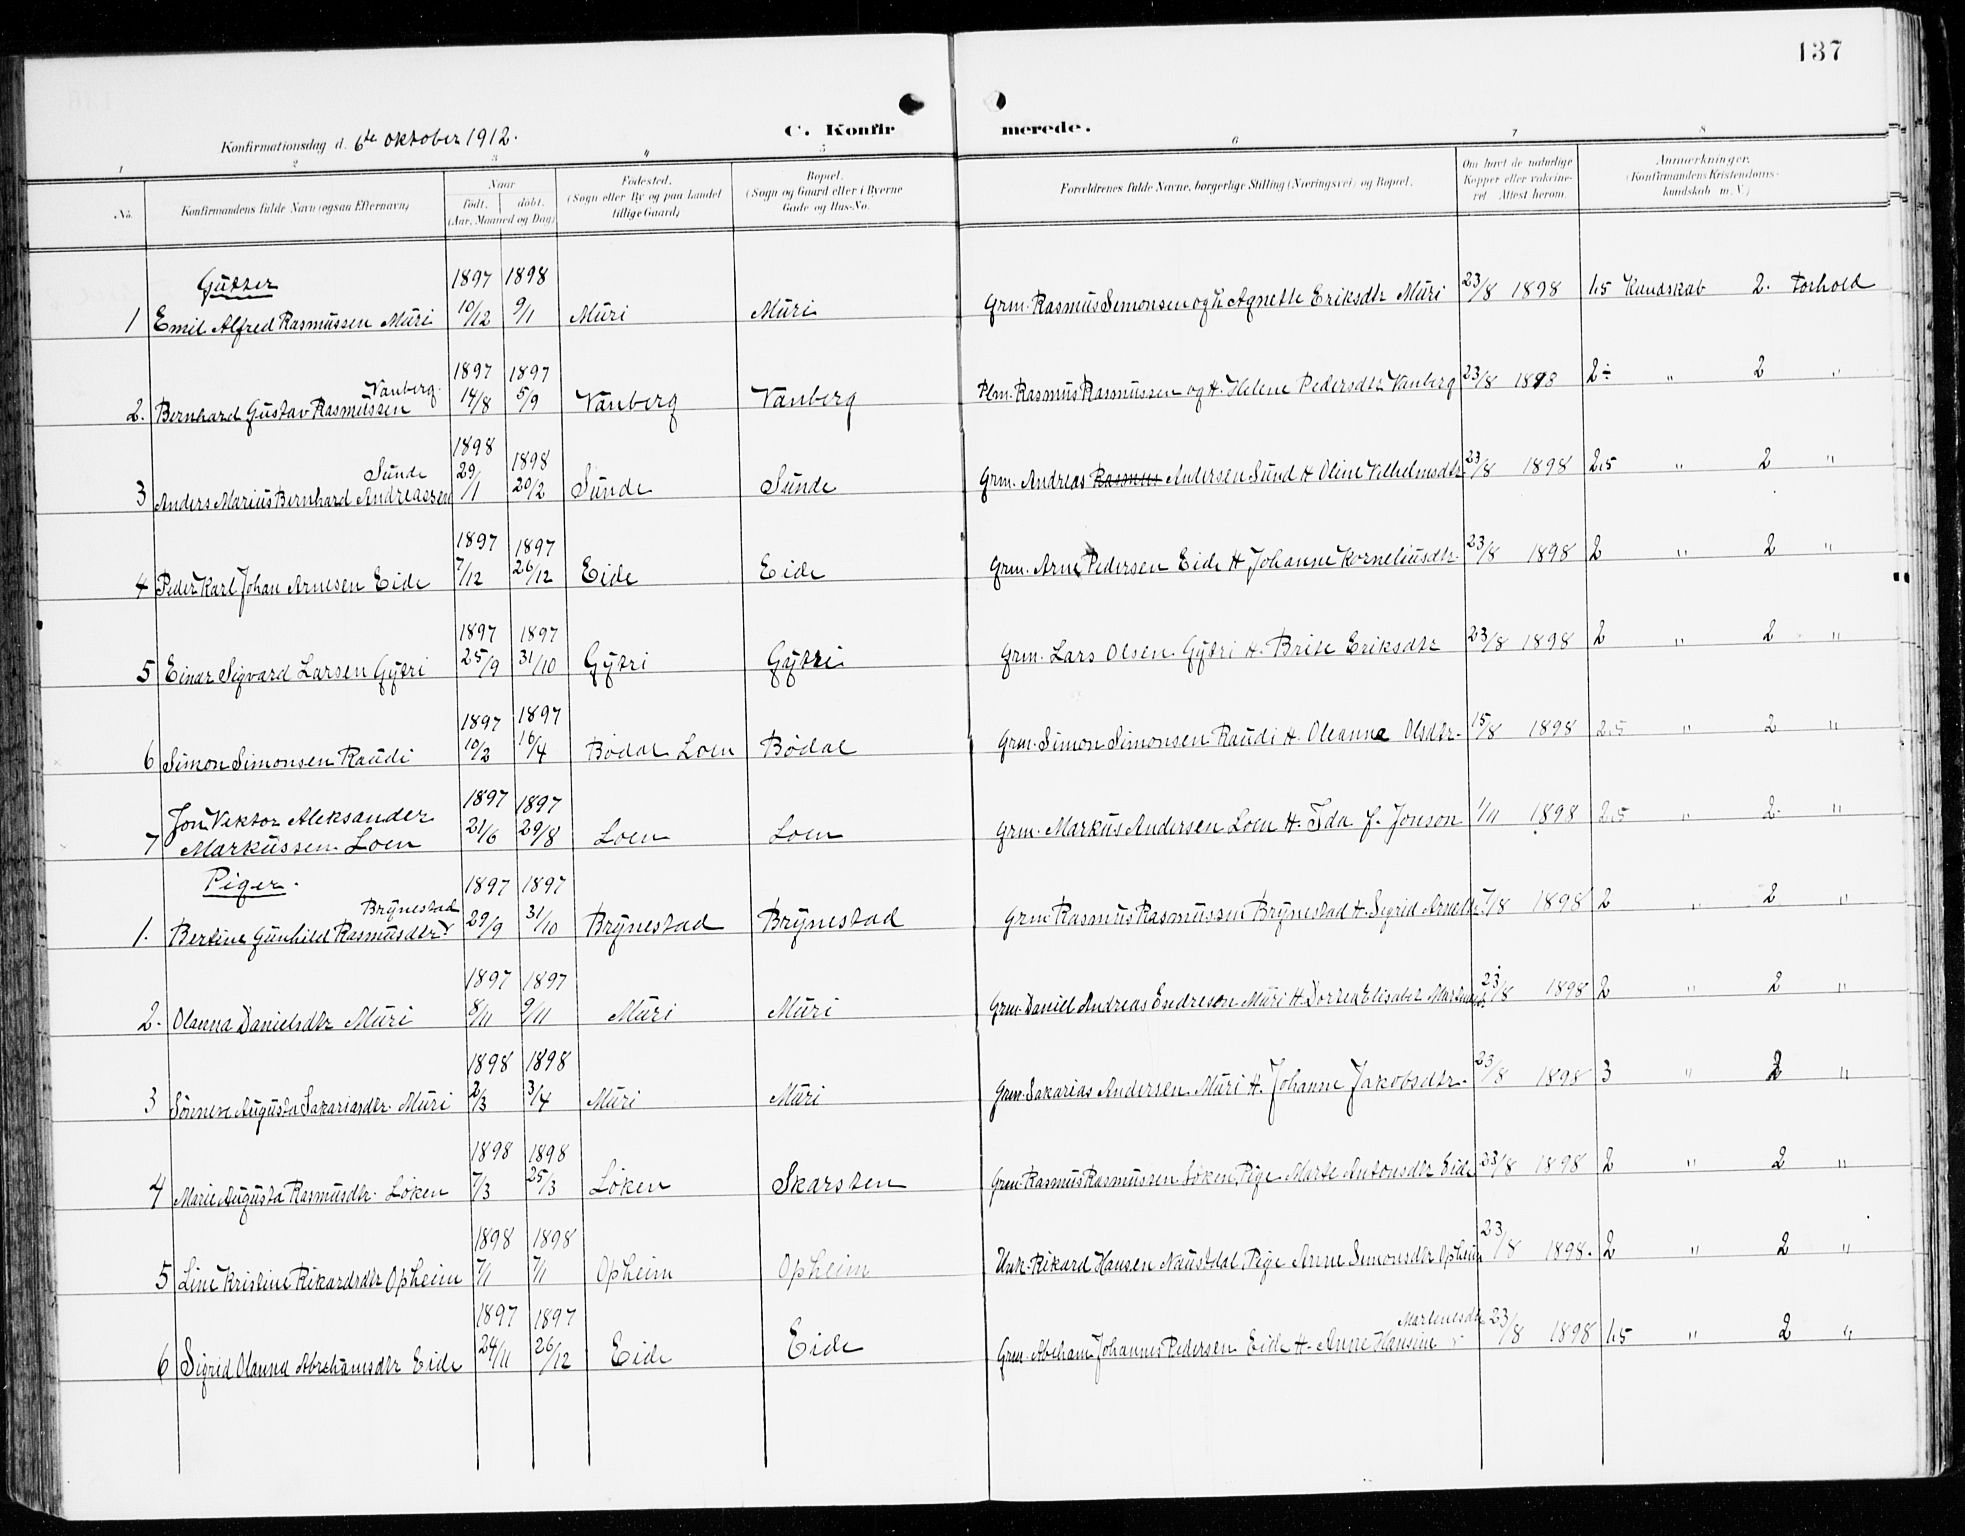 137
C. Konfirmerede.
Konfirmationsdag d. 6te oktober 1912.
1 2 3 4 5 6 7 8
No. Konfirmandens fulde Navn (ogsaa Efternavn) Naar født. døbt. (Aar, Maaned og Dag) Fødested. (Sogn eller By og paa Landet tillige Gaard) Bopæl. (Sogn og Gaard eller i Byerne Gade og Hus-No. Forældrenes fulde Navne, borgerlige Stilling (Næringsvei) og Bopæl. Om havt de naturlige Kopper eller vakcineret Attest herom. Anmærkninger. (Konfirmandens Kristendomskundskab m. V.)
Gutter
1 Emil Alfred Rasmussen Muri 1897 10/12 1898 9/1 Muri Muri Grm. Rasmus Simonsen og h Agnethe Eriksdtr Muri 23/8 1898 1.5 Kundskab 2. Forhold
2. Bernhard Gustav Rasmussen Vanberg. 1897 14/8 1897 5/9 Vanberg Vanberg Plm. Rasmus Rasmussen og H. Helene Pedersdtr Vanberg 23/8 1898 2- " 2 "
3 Anders Marius Bernhard Andreassen Sunde 1898 29/1 1898 20/2 Sunde Sunde Grm. Andreas Rasmus Andersen Sund H Oline Vilhelmsdtr 23/8 1898 2.5 " 2 "
4 Peder Karl Johan Arnesen Eide 1897 7/12 1897 26/12 Eide Eide Grm. Arne Pedersen Eide H Johanne Korneliusdtr. 23/8 1898 2 " 2 "
5 Einar Sigvard Larsen Gytri 1897 25/9 1897 31/10 Gytri Gytri Grm. Lars Olsen Gytri H. Brite Eriksdtr 23/8 1898 2 " 2 "
6 Simon Simonsen Raudi 1897 10/2 1897 16/4 Bødal Loen Bødal Grm. Simon Simonsen Raudi H Oleanna Olsdtr. 15/8 1898 2.5 " 2 "
7 Jon Viktor Aleksander Markussen Loen 1897 21/6 1897 29/8 Loen Loen Grm. Markus Andersen Loen H. Ida f. Jonson 1/11 1898 2.5 " 2 "
Piger.
1. Bertine Gunhild Rasmusdtr Brynestad 1897 29/9 1897 31/10 Brynestad Brynestad Grm Rasmus Rasmussen Brynestad H. Sigrid Arnedtr 7/8 1898 2 " 2 "
2. Olanna Danielsdtr Muri 1897 8/11 1897 9/11 Muri Muri Grm. Daniel Andreas Endreson Muri H Dorthea Elisabet 23/8 1898 2 " 2 "
3 Augusta Sakariasdtr. Muri 1898 2/3 1898 3/4 Muri Muri Grm. Sakarias Andersen Muri H. Johanne Jakobsdtr. 23/8 1898 3 " 2 "
4 Marie Augusta Rasmusdtr. Løken 1898 7/3 1898 25/3 Løken Skarsten Grm. Rasmus Rasmussen Løken, Pige Marte Antonsdtr Eide 23/8 1898 2 " 2 "
5 Line Kristine Rikardsdtr Opheim 1898 7/1 1898 7/1 Opheim Opheim Unk. Rikard Hansen Naustdal, Pige Anne Simonsdtr Opheim 23/8 1898. 2 " 2 "
6 Sigrid Olanna Abrahamsdtr Eide 1897 24/11 1897 26/12 Eide Eide Grm. Abraham Johannes Pedersen Eide H. Anne Hansine Martinesdtr 23/8 1898 1.5 " 2 "